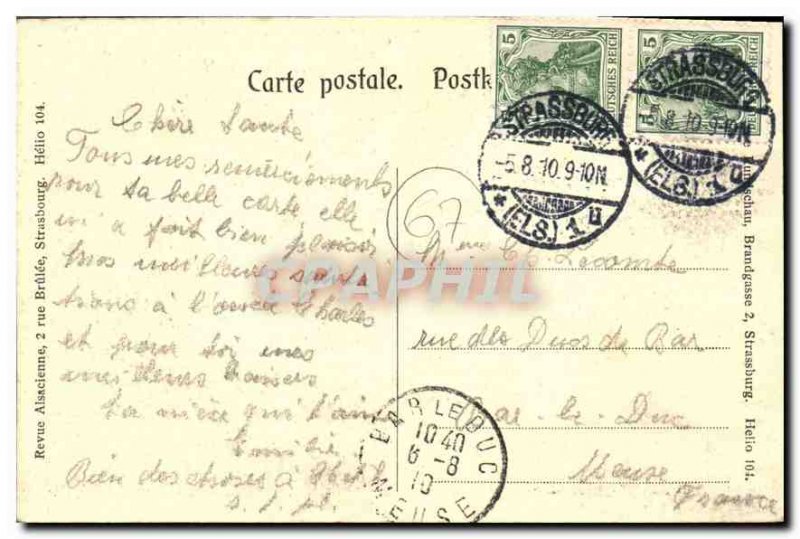 Carte postale. Postk
Chère Tante
Tous mes remerciements
pour ta belle carte elle
m'a fait bien plaisir
mes meilleures saluta
tions à l'oncle Charles
et pour toi mes
meilleurs baisers
La nièce qui t'aime
Emilie
Bien des choses à
s. j. pl.
Mme Ch. Lecomte
rue des Ducs de Bar
Bar-le-Duc
Meuse
France
67
5
DEUTSCHES REICH
5
REICH
STRASSBURG
-5.8.10.9-10N
* (ELS.) 1 u
STRASSBURG
8.10.9-10N
* (ELS.) 1 u
BAR LE DUC
10 40
6 -8
10
MEUSE
CPAPHIL
Revue Alsacienne, 2 rue Brûlée, Strasbourg. Hélio 104.
schau, Brandgasse 2, Strassburg. Helio 104.